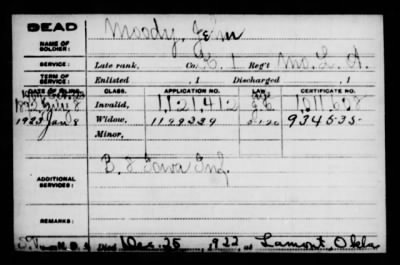 DEAD
NAME OF SOLDIER: Moody, John
SERVICE: Late rank, Co. E. 1 Reg't Mo. L. A.
TERM OF SERVICE: Enlisted , 1 Discharged , 1
DATE OF FILING. CLASS. APPLICATION NO. LAW. CERTIFICATE NO.
1892 July 8 Invalid, 1,121,412 1,011,628
1923 Jan 8 Widow, 1199229 934535
Minor,
ADDITIONAL SERVICES: B. 2 Iowa Inf.
REMARKS:
Died Dec. 25, 1922, at Lamont, Okla